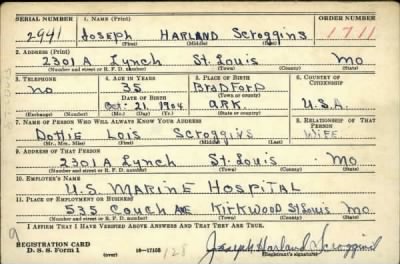 SERIAL NUMBER 1. NAME (Print) ORDER NUMBER
2941 Joseph HARLAND Scroggins 1711
(First) (Middle) (Last)
2. ADDRESS (Print)
2301A Lynch St. Louis Mo
(Number and street or R. F. D. number) (Town) (County) (State)
3. TELEPHONE 4. AGE IN YEARS 5. PLACE OF BIRTH 6. COUNTRY OF CITIZENSHIP
No 35 BRADFORD
DATE OF BIRTH (Town or county)
Oct. 21, 1904 ARK. U.S.A.
(Exchange) (No.) (Mo.) (Day) (Yr.) (State or country)
7. NAME OF PERSON WHO WILL ALWAYS KNOW YOUR ADDRESS 8. RELATIONSHIP OF THAT PERSON
Dottie Lois Scroggins WIFE
(Mr., Mrs., Miss) (First) (Middle) (Last)
9. ADDRESS OF THAT PERSON
2301A Lynch St. Louis Mo
(Number and street or R. F. D. number) (Town) (County) (State)
10. EMPLOYER'S NAME
U.S. MARINE HOSPITAL
11. PLACE OF EMPLOYMENT OR BUSINESS
535 Couch Ave KIRKWOOD St Louis Mo.
(Number and street or R. F. D. number) (Town) (County) (State)
I AFFIRM THAT I HAVE VERIFIED ABOVE ANSWERS AND THAT THEY ARE TRUE.
9
REGISTRATION CARD
D. S. S. Form 1 (over) 16—17105 128 Joseph Harland Scroggins
(Registrant's signature)